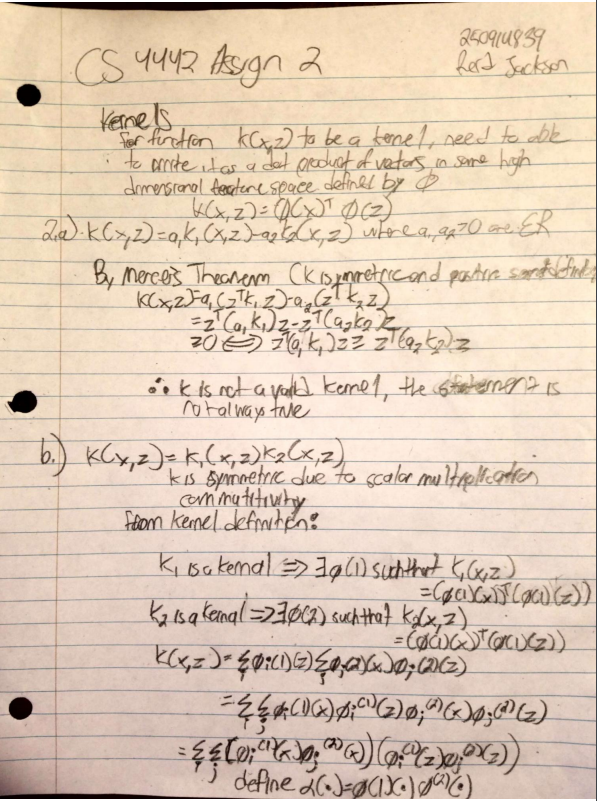 CS 4442 Assign 2
Jackson
Kernels
For function K(x,z) to be a kernel, need to able
to write it as a dot product of vectors in some high
dimensional feature space defined by Φ
K(x,z)=Φ(x)ᵀ Φ(z)
2.a) K(x,z)=a₁K₁(x,z)-a₂K₂(x,z) where a₁,a₂>0 are ∈R
By Mercer's Theorem (K is symmetric and positive
K(x,z)=a₁(zᵀK₁z)-a₂(zᵀK₂z)
=zᵀ(a₁K₁)z-zᵀ(a₂K₂)z
≥0 ⟺ zᵀ(a₁K₁)z≥ zᵀ(a₂K₂)z
∴ K is not a valid kernel, the statement is
not always true
b.) K(x,z)=K₁(x,z)K₂(x,z)
K is symmetric due to scalar multiplication
commutitivity
From kernel definition:
K₁ is a kernal ⟹ ∃Φ(1) such that K₁(x,z)
=(Φ(1)(x))ᵀ(Φ(1)(z))
K₂ is a kernal ⟹ ∃Φ(2) such that K₂(x,z)
=(Φ(1)(x))ᵀ(Φ(1)(z))
K(x,z)=ΣΦᵢ(1)(z)ΣΦⱼ(2)(x)Φⱼ(2)(z)
=ΣᵢΣⱼΦᵢ(1)(x)Φᵢ⁽¹⁾(z)Φⱼ⁽²⁾(x)Φⱼ⁽²⁾(z)
=ΣᵢΣⱼ(Φᵢ⁽¹⁾(x)Φⱼ⁽²⁾(x))(Φᵢ⁽¹⁾(z)Φⱼ⁽²⁾(z))
define α(·)=Φ(1)(·)Φ⁽²⁾(·)